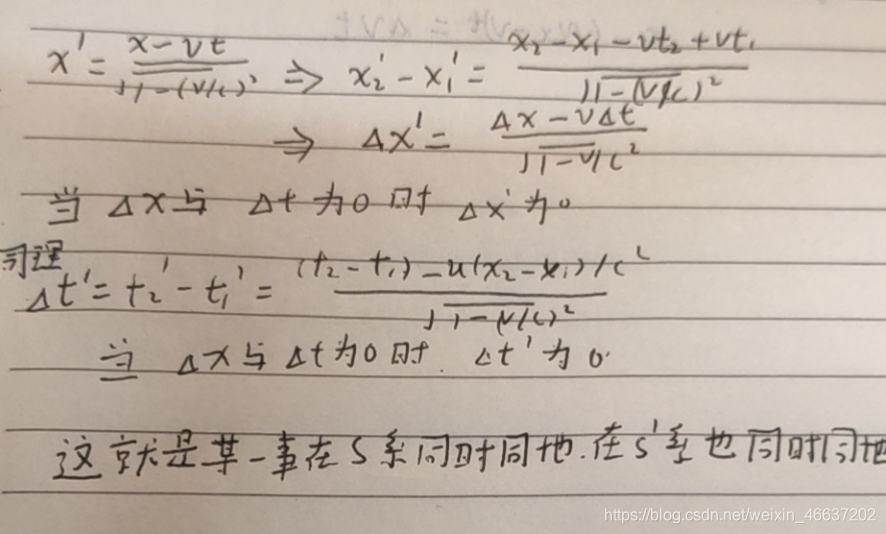 x' = (x - vt) / √(1-(v/c)²) ⇒ x₂' - x₁' = (x₂ - x₁ - vt₂ + vt₁) / √(1-(v/c)²)
⇒ Δx' = (Δx - vΔt) / √(1-v/c²)
当 Δx与 Δt 为0时 Δx' 为0
同理
Δt' = t₂' - t₁' = ((t₂ - t₁) - u(x₂ - x₁)/c²) / √(1-(v/c)²)
当 Δx与Δt为0时. Δt' 为0.
这就是某一事在S系同时同地.在S'系也同时同地
https://blog.csdn.net/weixin_46637202